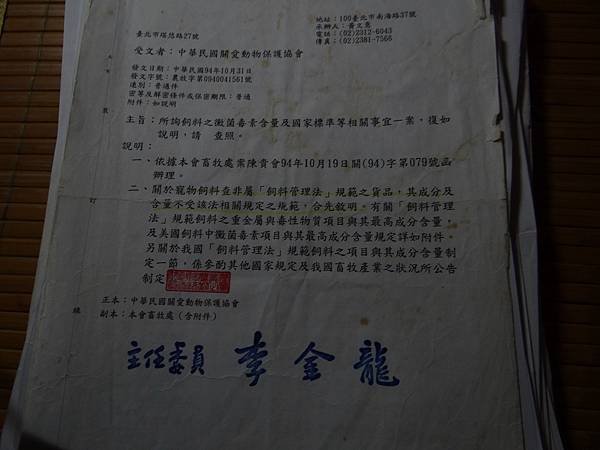 地址：100臺北市南海路37號
承辦人：黃文意
電話：(02)2312-6043
傳真：(02)2381-7566
臺北市堤悠路27號
受文者：中華民國關愛動物保護協會
發文日期：中華民國94年10月31日
發文字號：農牧字第0940041561號
速別：普通件
密等及解密條件或保密期限：普通
附件：如說明
主旨：所詢飼料之黴菌毒素含量及國家標準等相關事宜一案，復如
說明，請　查照。
說明：
一、依據本會畜牧處案陳貴會94年10月19日關(94)字第079號函
辦理。
二、關於寵物飼料查非屬「飼料管理法」規範之貨品，其成分及
含量不受該法相關規定之規範，合先敘明。有關「飼料管理
法」規範飼料之重金屬與毒性物質項目與其最高成分含量，
及美國飼料中黴菌毒素項目與其最高成分含量規定詳如附件。
另關於我國「飼料管理法」規範飼料之項目與其成分含量制
定一節，係參酌其他國家規定及我國畜牧產業之狀況所公告
制定
訂
線
正本：中華民國關愛動物保護協會
副本：本會畜牧處(含附件)
主任委員 李金龍